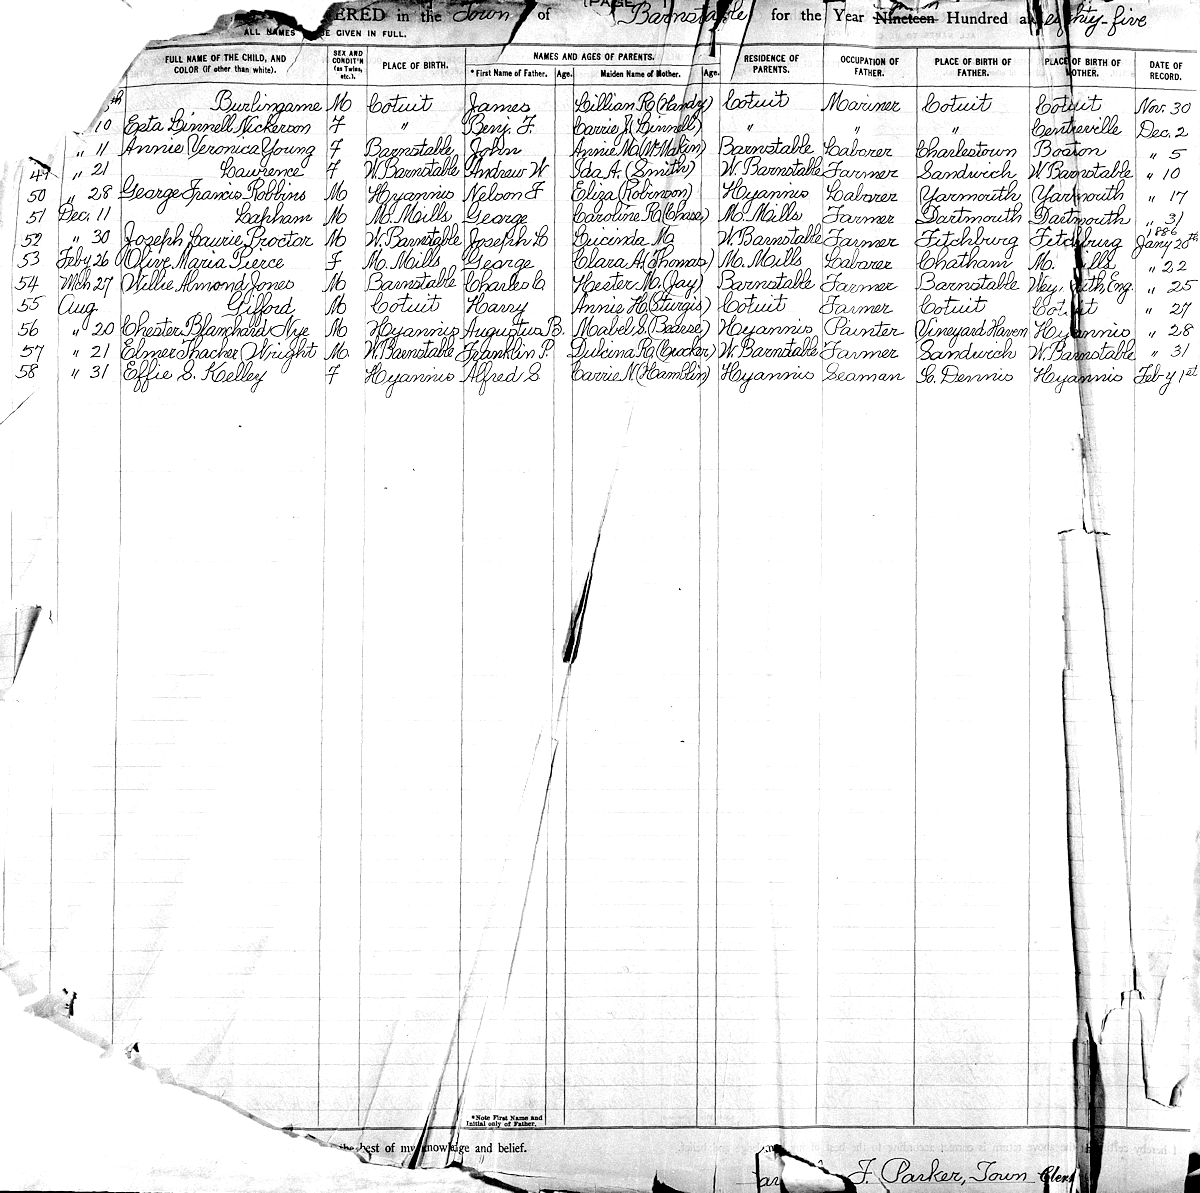 ERED in the Town of Barnstable for the Year Nineteen Hundred a eighty-five
ALL NAMES BE GIVEN IN FULL.
FULL NAME OF THE CHILD, AND COLOR (if other than white). SEX AND CONDIT'N (as Twins, etc.). PLACE OF BIRTH. NAMES AND AGES OF PARENTS. *First Name of Father. Age. Maiden Name of Mother. Age. RESIDENCE OF PARENTS. OCCUPATION OF FATHER. PLACE OF BIRTH OF FATHER. PLACE OF BIRTH OF MOTHER. DATE OF RECORD.
th Burlingame M Cotuit James Lillian R (Handy) Cotuit Mariner Cotuit Cotuit Nov. 30
10 Esta Linnell Nickerson F " Benj. F. Carrie J (Linnell) " " " Centreville Dec. 2
" 11 Annie Veronica Young F Barnstable John Annie M (McMakin) Barnstable Laborer Charlestown Boston " 5
49 " 21 Lawrence F W. Barnstable Andrew W Ida A. (Smith) W. Barnstable Farmer Sandwich W Barnstable " 10
50 " 28 George Francis Robbins M Hyannis Nelson F Eliza (Robinson) Hyannis Laborer Yarmouth Yarmouth " 17
51 Dec. 11 Lapham M M. Mills George Caroline R (Chase) M. Mills Farmer Dartmouth Dartmouth " 31
52 " 30 Joseph Laurie Proctor M W. Barnstable Joseph L Lucinda M W Barnstable Farmer Fitchburg Fitchburg 1886 Jany 20th
53 Feby 26 Olive Maria Pierce F M. Mills George Clara A (Thomas) M. Mills Laborer Chatham M. ills " 22
54 Mch 27 Willie Almond Jones M Barnstable Charles C Hester M. (Jay) Barnstable Farmer Barnstable Wey th Eng. " 25
55 Aug Gifford M Cotuit Harry Annie H. (Sturgis) Cotuit Farmer Cotuit Cotuit " 27
56 " 20 Chester Blanchard Nye M Hyannis Augustus B. Mabel S (Bearse) Hyannis Painter Vineyard Haven Hyannis " 28
57 " 21 Elmer Thacher Wright M. W. Barnstable Franklin P. Dulcina R (Crocker) W. Barnstable Farmer Sandwich W. Barnstable " 31
58 " 31 Effie S. Kelley F Hyannis Alfred S Carrie N (Hamblin) Hyannis Seaman So. Dennis Hyannis Feby 1st
*Note First Name and
Initial only of Father.
the best of my knowledge and belief.
F. Parker, Town Clerk